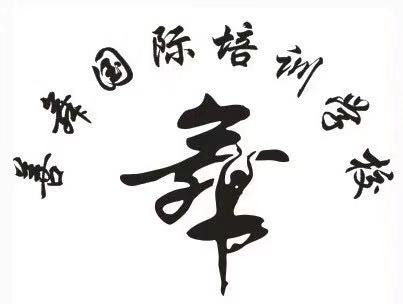 舞国际培训学校
舞